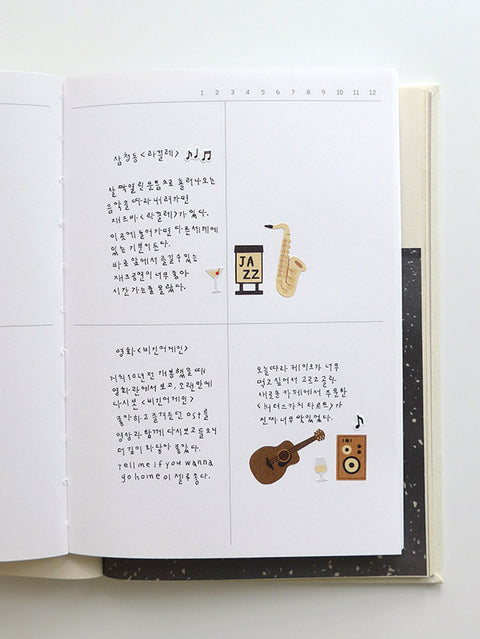 1 2 3 4 5 6 7 8 9 10 11 12
삼청동 <라끌레>
살짝 열린 문틈으로 흘러나오는
음악을 따라 내려가면
재즈바 <라끌레>가 있다.
이곳에 들어가면 다른세계에
있는 기분이 든다.
바로 앞에서 즐길 수 있는
재즈공연이 너무 좋아
시간 가는줄 몰랐다.
JA
ZZ
영화 <비긴어게인>
거의 10년 전 개봉했을 때
영화관에서 보고, 오랜만에
다시 본 <비긴어게인>
좋아하고 즐겨듣던 ost를
영상과 함께 다시보고 들으니
더 깊이 와닿아 좋았다.
tell me if you wanna
go home이 젤루 좋다.
오늘따라 케이크가 너무
먹고 싶어서 고르고 골라
새로운 카페에서 주문한
<버터스카치 타르트>가
진짜 너무 맛있었다.